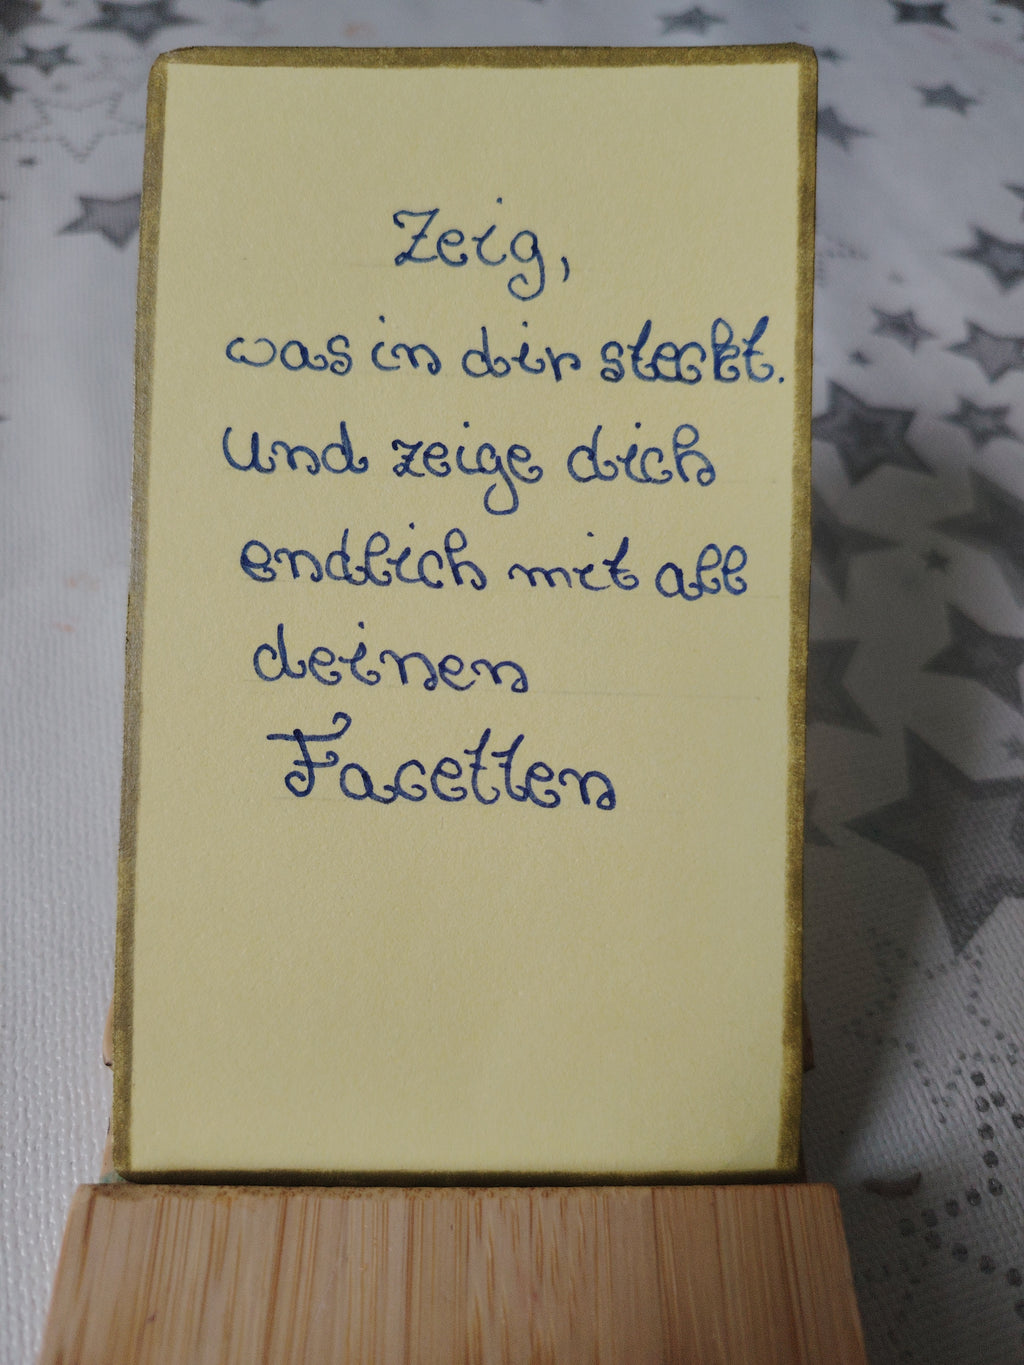 Zeig,
was in dir steckt.
Und zeige dich
endlich mit all
deinen
Facetten